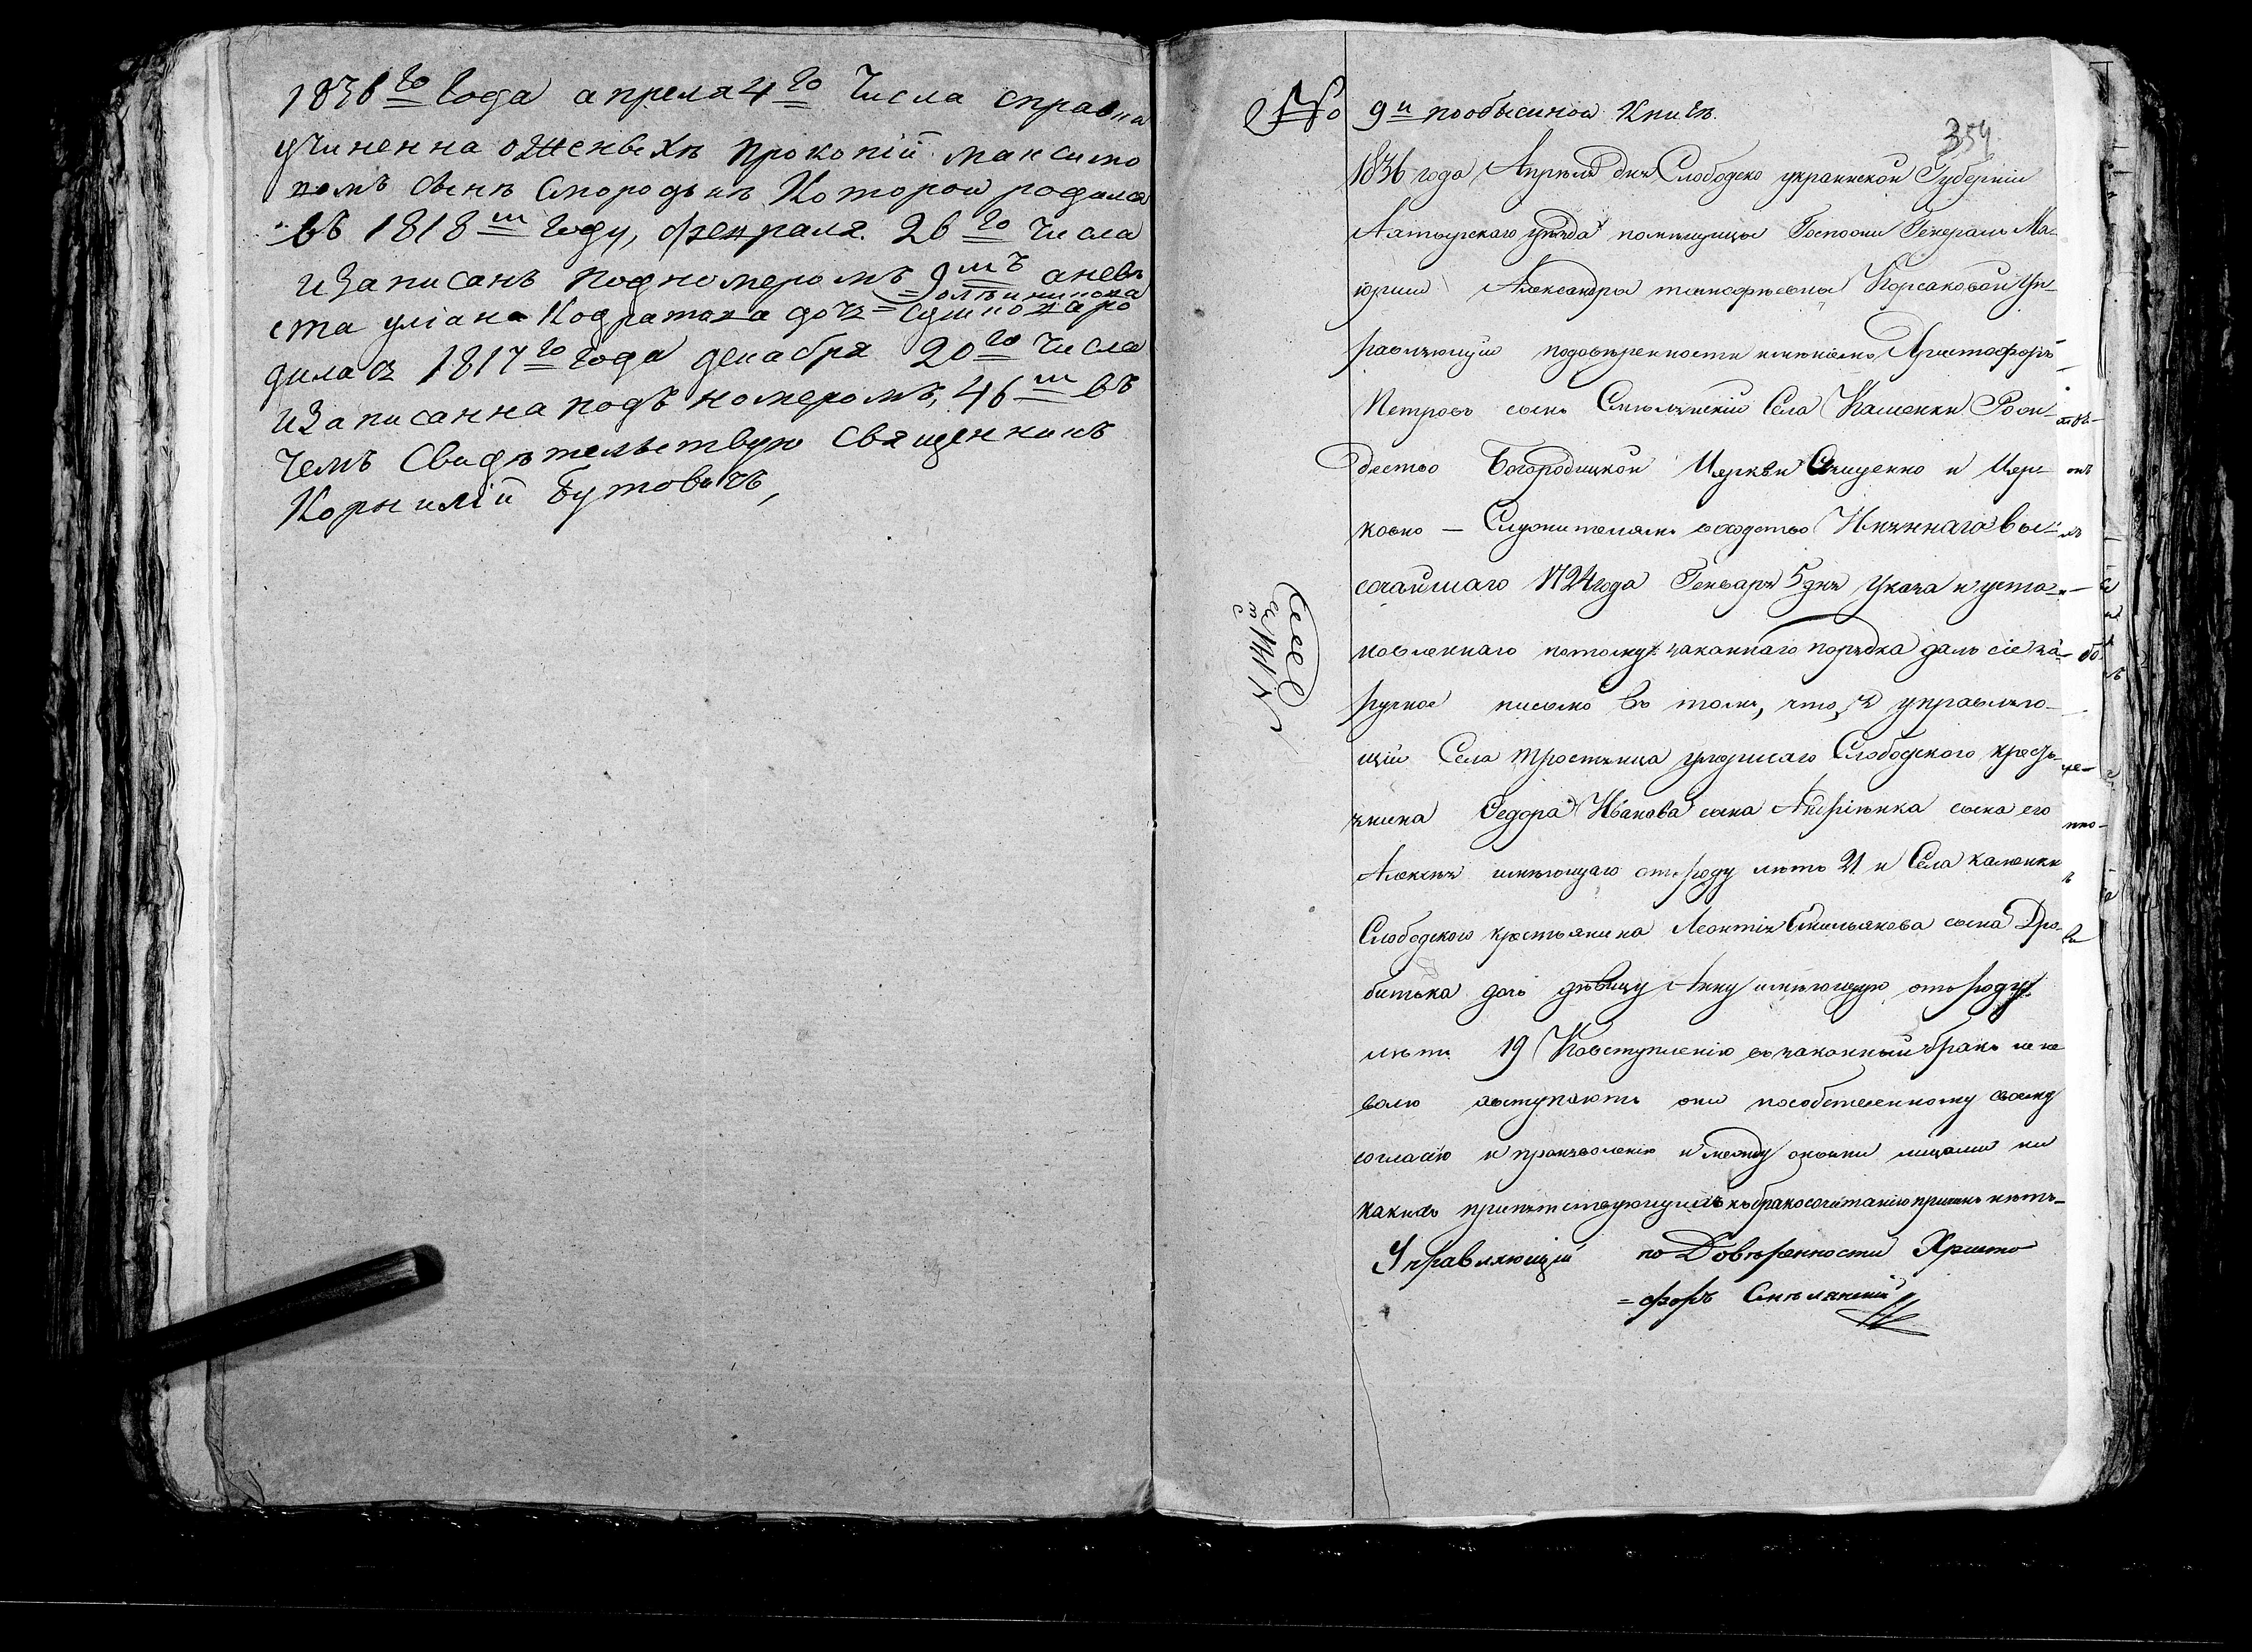 1836го года апреля 4го Числа справка
учиненна о женихѣ Прокопiй Максимо
вомъ сынѣ Смородькѣ Которой родился
въ 1818м году, февраля 26го Числа
и Записанъ подномеромъ 9мъ аневѣ
ста улiана Кодратова доч=
дилась 1817го года декабря 20го числа
и Записанна подъ номеромъ, 46м въ
чемъ Свидѣтельствую священникъ
Корнилiй Бутовичъ,
№ 9й пообысной Книгѣ.
354
1836 года Апрѣля дня Слободско украинской Губернiи
Ахтырскаго уѣзда помѣщицы Госпожи Генералъ Ма-
iорши Александры тимофѣевны Корсаковой Уп-
равляющiй подовѣренности имѣнiемъ Христофоръ
Петровъ сынъ Смѣлянскiй Села Каменки Рож-
дество Богородицкой Церкви Священно и Цер-
ковно — Служителямъ всходство Имяннаго вы-
сочайшаго 1724 года Генваря 5 дня Указа и уста-
новленнаго потому законнаго порядка далъ сiе за-
ручное письмо въ томъ, что я управляю-
щiй Села тростянца Слободского кресть-
янина Федора Иванова сына сына его
Алексѣя имѣющаго отъ роду лѣтъ 21 и Села каменки
Слободского крестьянина Леонтiя Емильянова сына Дро-
битька дочь дѣвицу Анну имѣющую отъ роду
лѣтъ 19 Ковступленiю въ законный бракъ не не
волю вступаютъ они пособственному своему
согласiю и произволенiю и между оными лицами ни
какихъ препятствующихъ къ бракосочетанiю причинъ нѣтъ—
Управляющiй по Довѣренности Христо
=форъ Смѣлянскiй